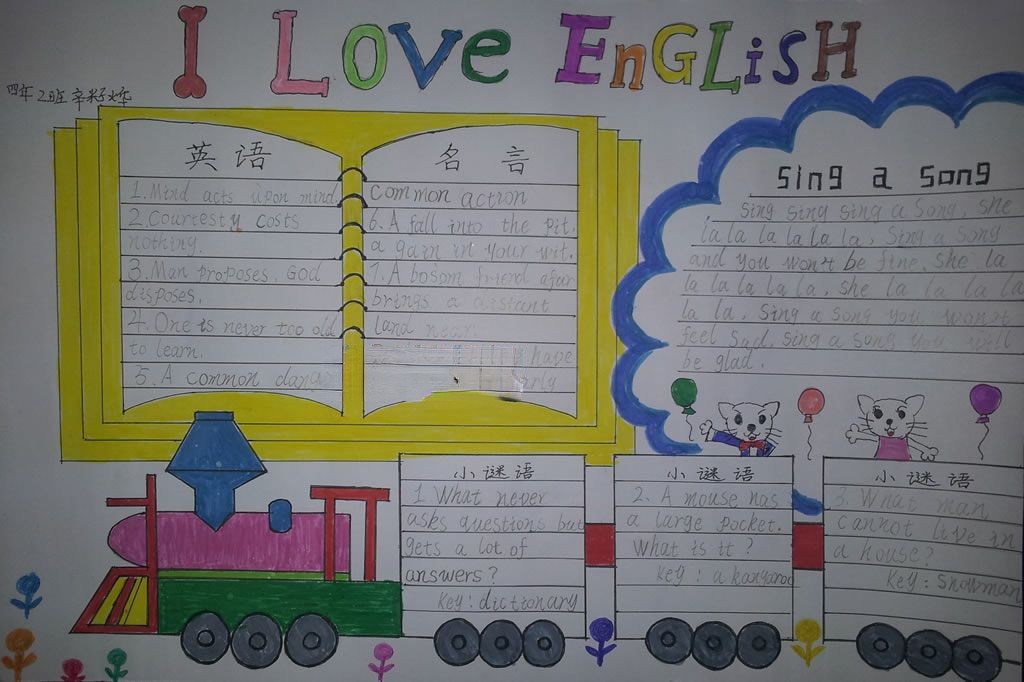 I LOVE EnGLiSH
四年2班辛
英语
1. Mind acts upon mind.
2. Courtesty costs
nothing.
3. Man proposes. God
disposes.
4. One is never too old
to learn.
5. A common dang
名言
common action
6. A fall into the pit.
a gain in your wit.
7. A bosom friend afar
brings a distant
land near.
have
arly
Sing a Song
Sing sing sing a Song, she
la la la la la la, Sing a Song
and you won't be fine, she la
la la la la la, she la la la la
la la, Sing a song you won't
feel sad, sing a song you will
be glad.
小谜语
1 What never
asks questions but
gets a lot of
answers?
Key: dictionary
小谜语
2. A mouse has
a large pocket.
What is it?
Key: a kangaroo
小谜语
3. What man
cannot live in
a house?
Key: Snowman